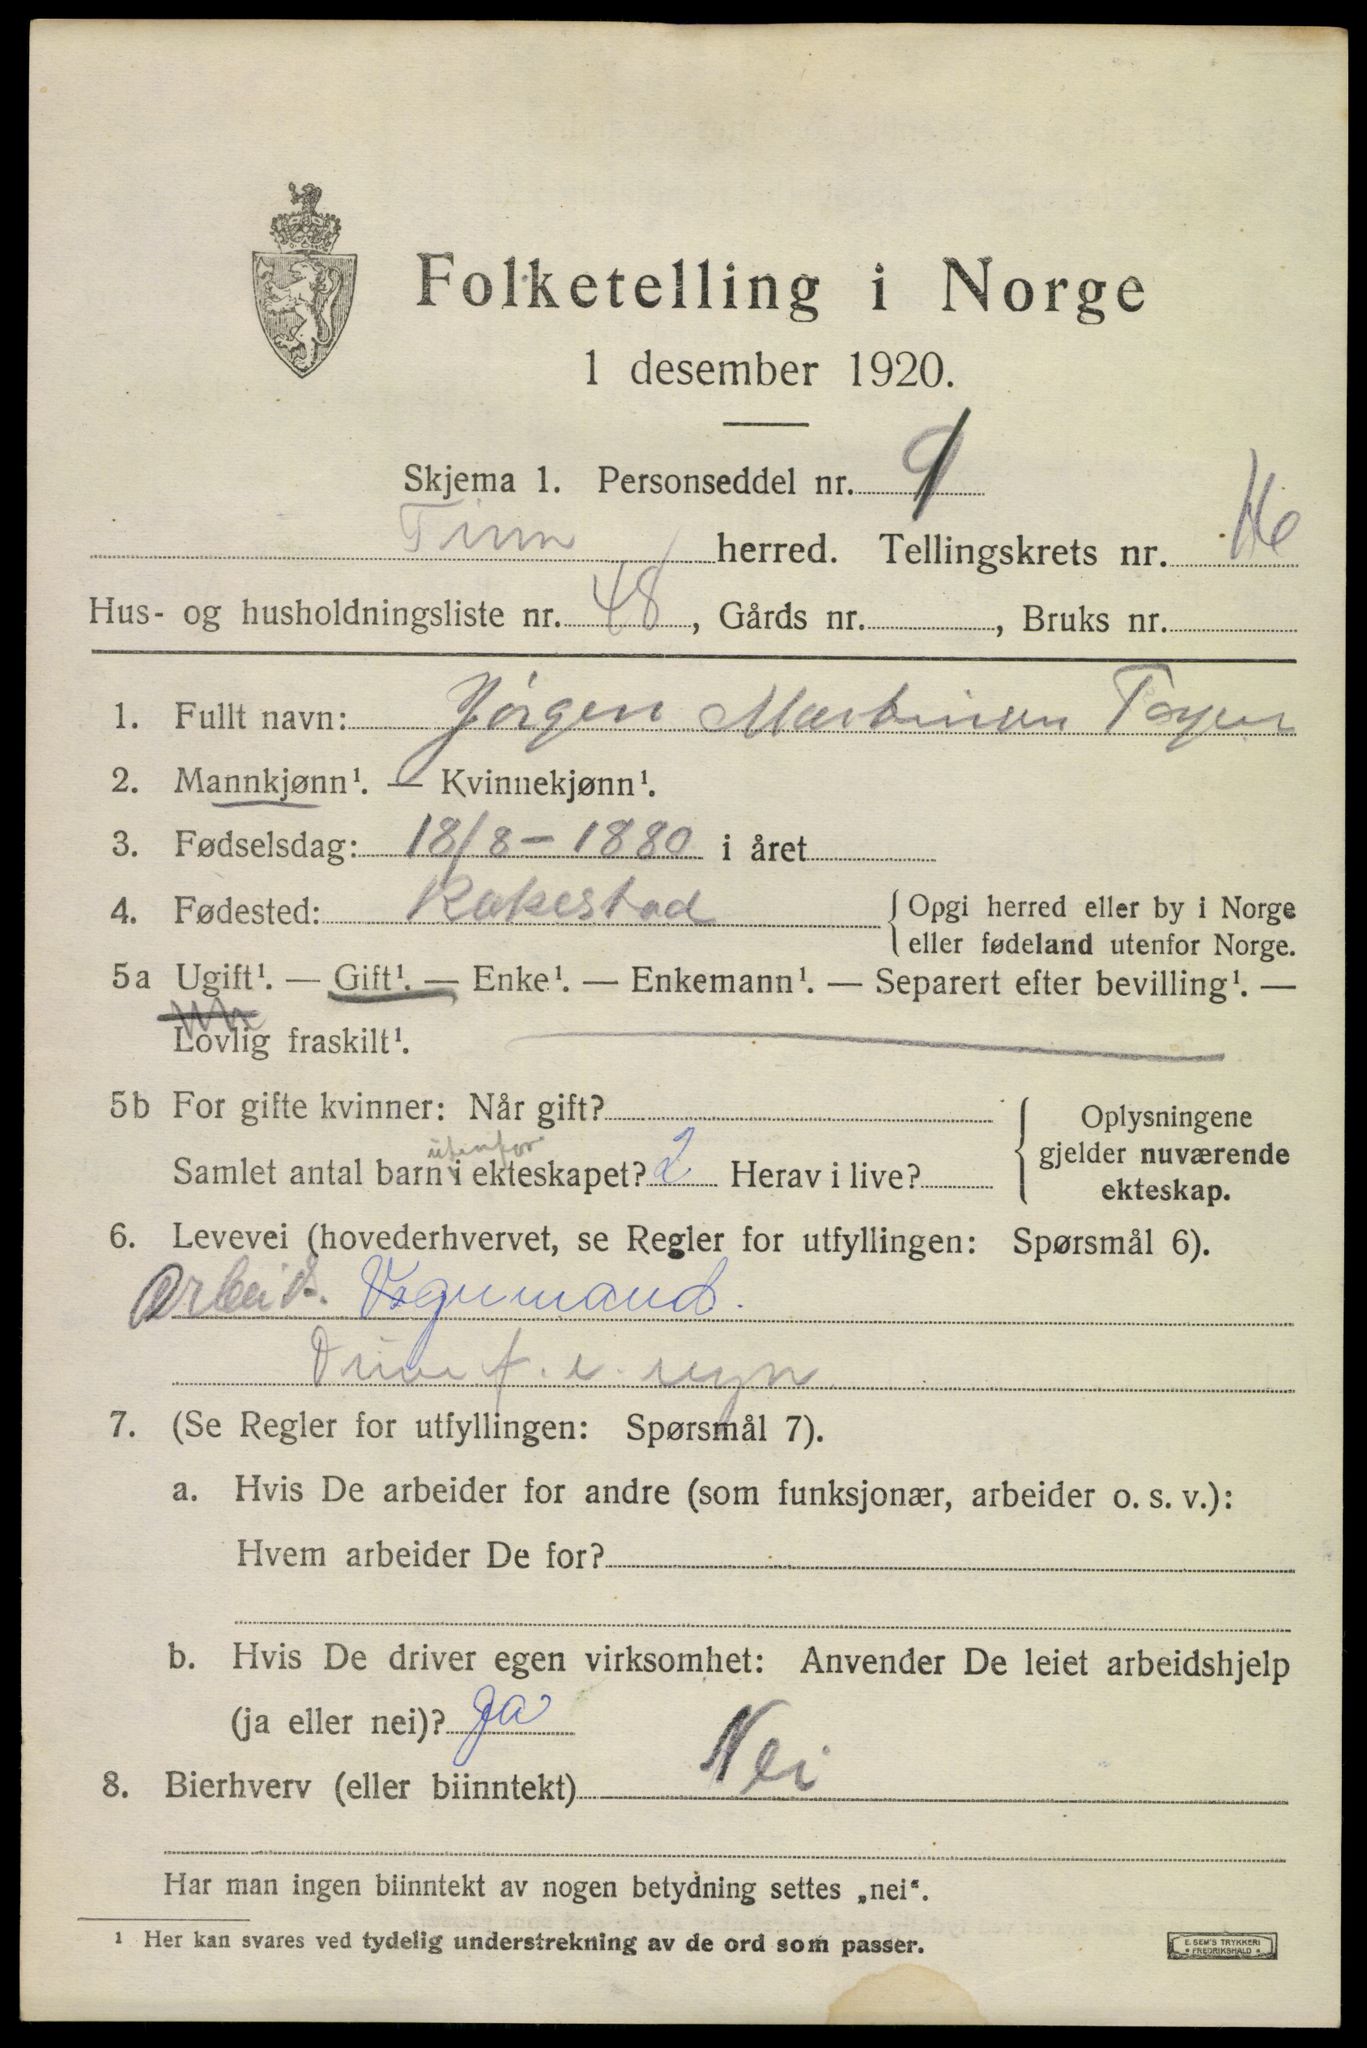 Folketelling i Norge
1 desember 1920.
Skjema 1. Personseddel nr. 9
Tinn herred. Tellingskrets nr. 16
Hus- og husholdningsliste nr. 48, Gårds nr. , Bruks nr.
1. Fullt navn: Jörgen Martinsen
2. Mannkjønn¹. — Kvinnekjønn¹.
3. Fødselsdag: 18/8 - 1880 i året
4. Fødested: Rakestad { Opgi herred eller by i Norge
eller fødeland utenfor Norge.
5a Ugift¹. — Gift¹. — Enke¹. — Enkemann¹. — Separert efter bevilling¹. —
Lovlig fraskilt¹.
5b For gifte kvinner: Når gift? { Oplysningene
gjelder nuværende
ekteskap.
utenfor
Samlet antal barn i ekteskapet? 2 Herav i live?
6. Levevei (hovederhvervet, se Regler for utfyllingen: Spørsmål 6).
Arbeid. Vognmand.
7. (Se Regler for utfyllingen: Spørsmål 7).
a. Hvis De arbeider for andre (som funksjonær, arbeider o. s. v.):
Hvem arbeider De for?
b. Hvis De driver egen virksomhet: Anvender De leiet arbeidshjelp
(ja eller nei)? Ja
8. Bierhverv (eller biinntekt) Nei
Har man ingen biinntekt av nogen betydning settes „nei“.
¹ Her kan svares ved tydelig understrekning av de ord som passer.
E. SEM'S TRYKKERI
FREDRIKSHALD